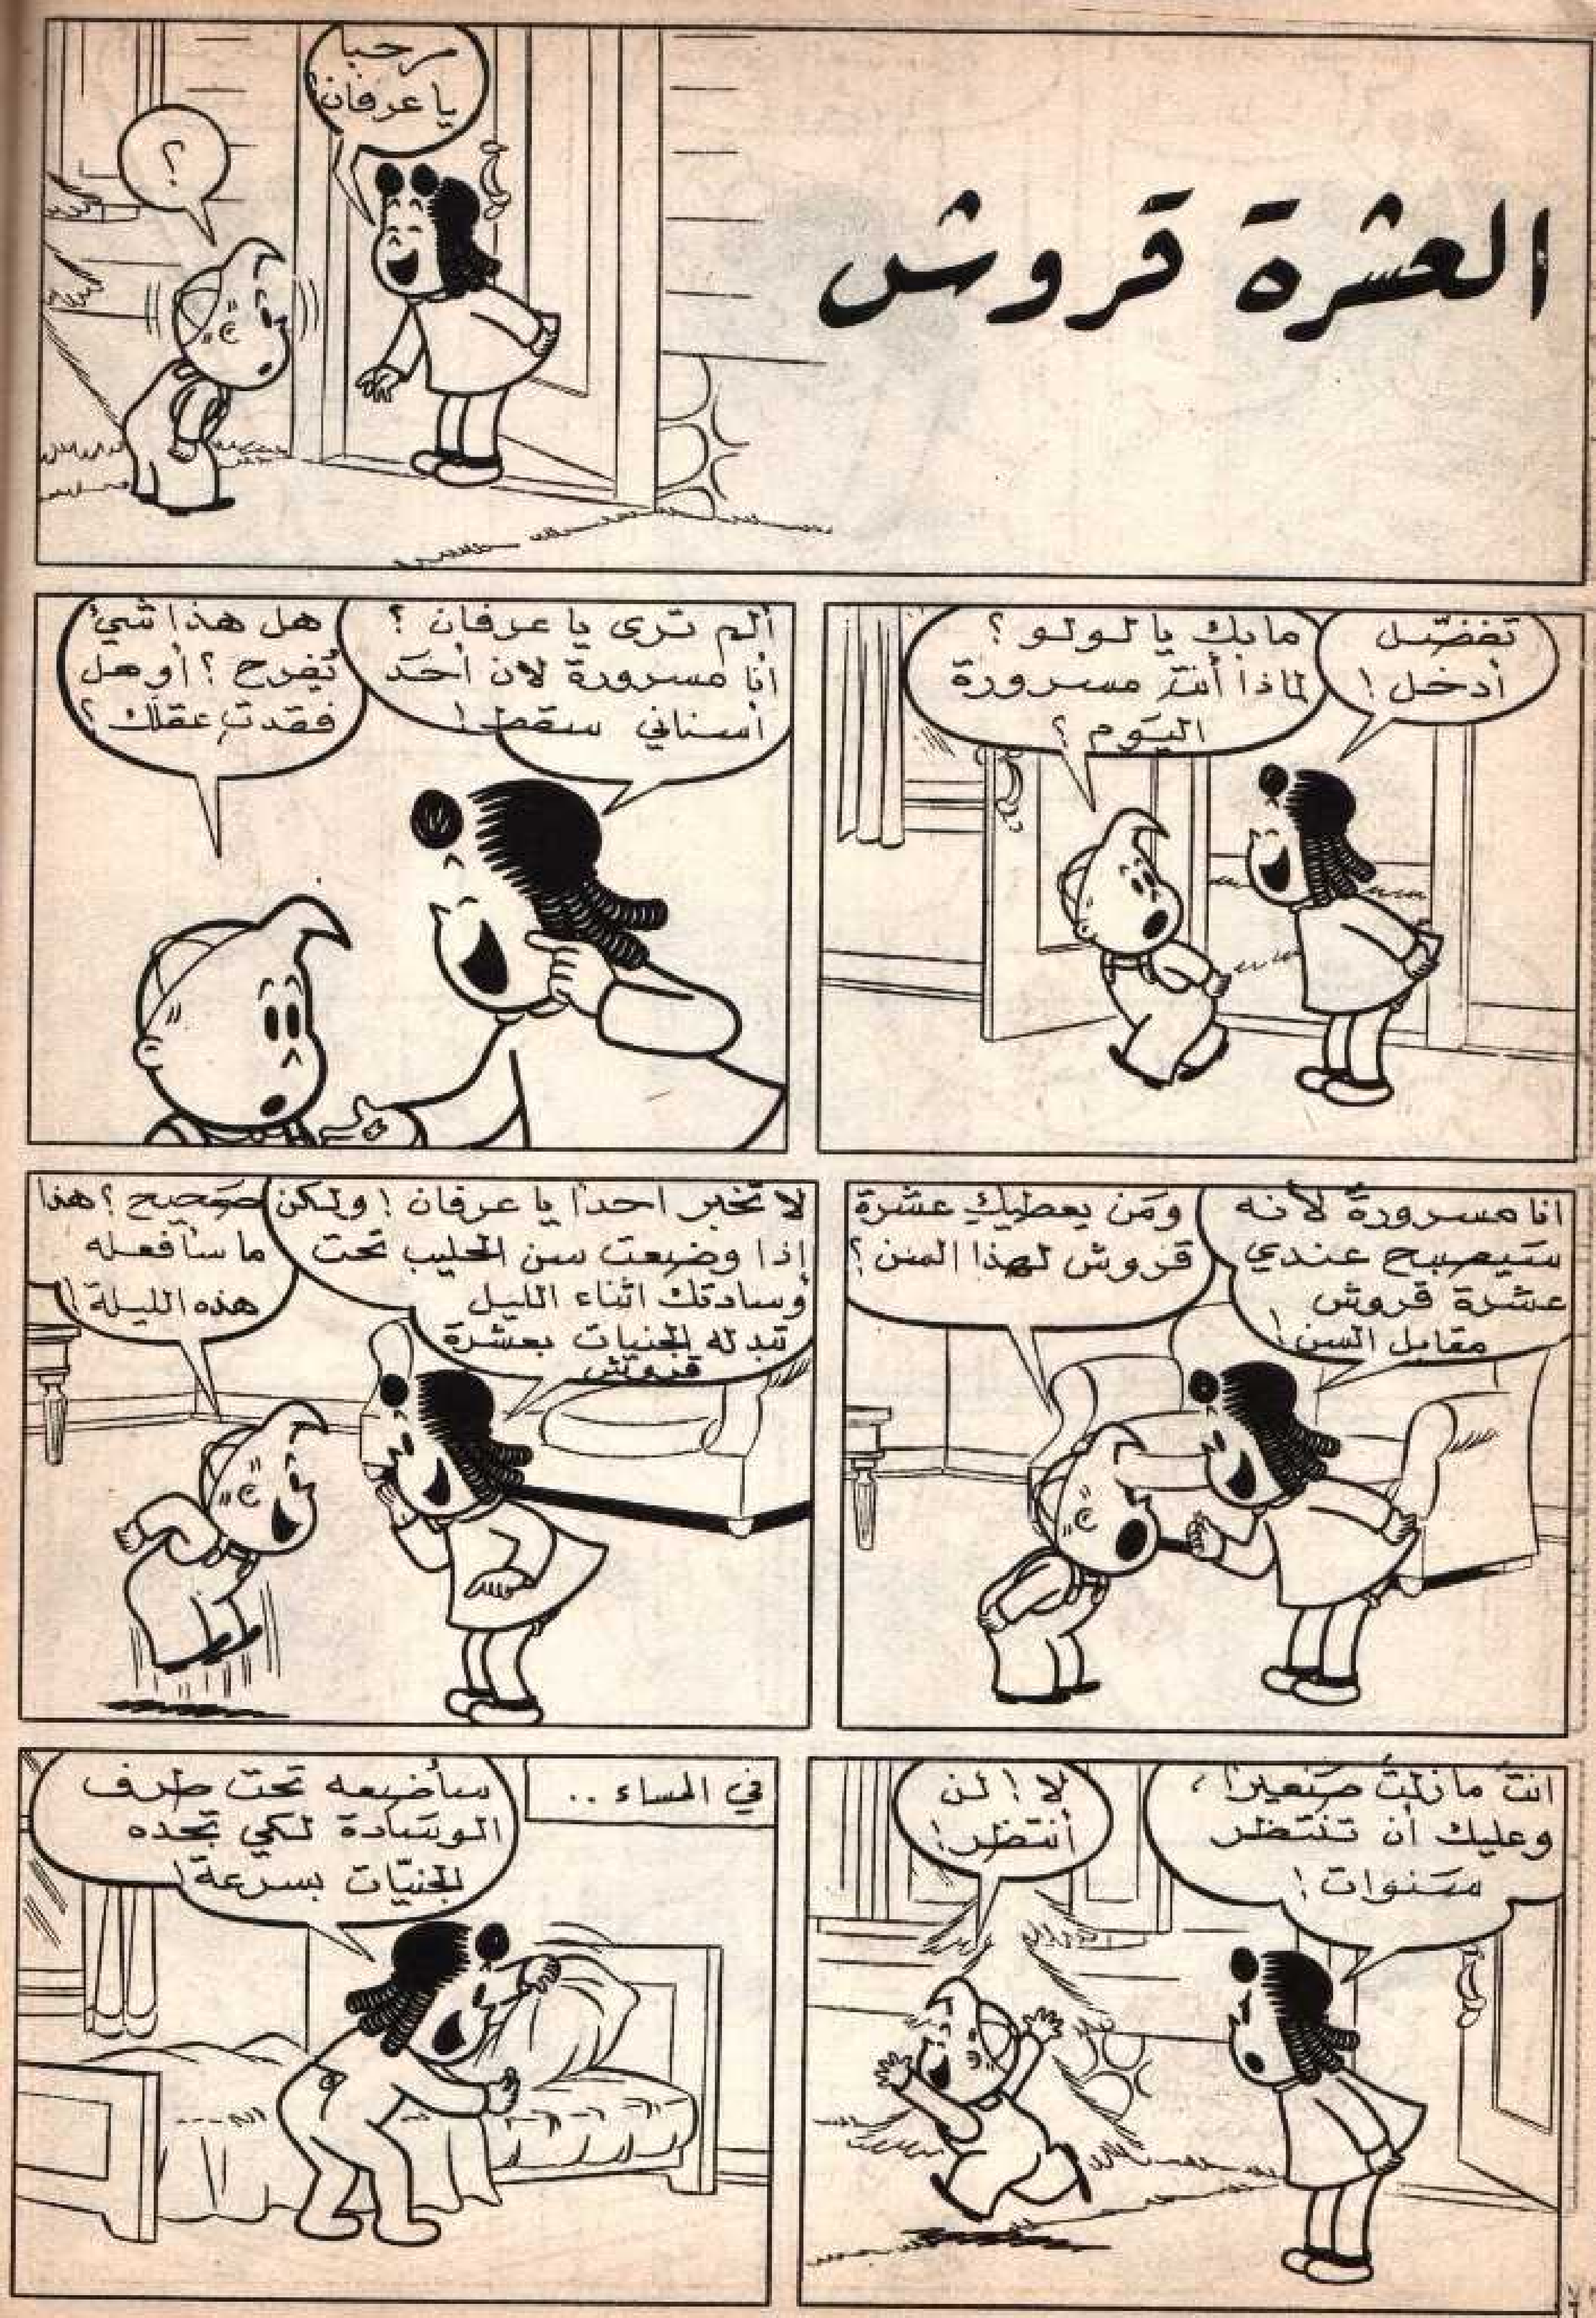 العشرة قروش
مرحبا
يا عرفان
؟
تفضّل
أدخل !
ما بك يا لولو ؟
لماذا أنتِ مسرورة
اليَوم ؟
ألم ترى يا عرفان ؟
أنا مسرورة لان أحَد
أسناني سقط !
هل هذا شيئ
يُفرح ؟ أو هل
فقدتِ عقلك ؟
انا مسرورة لأنه
سَيصبح عندي
عشرة قروش
مقابل السن !
ومَن يعطيكِ عشرة
قروش لهذا السن ؟
لا تخبر احدا يا عرفان ! ولكن
إذا وضعت سن الحليب تحت
وسادتك اثناء الليل
تبدله الجنيات بعشرة
قروش
صَحيح ؟ هذا
ما سأفعله
هذه الليلة !
انتَ ما زلتَ صَغيرا ،
وعليك أن تنتظر
سَنوات !
لا ! لن
أنتظر !
في المساء ..
سأضعه تحت طرف
الوسَادة لكي تجده
الجنيّات بسرعة !